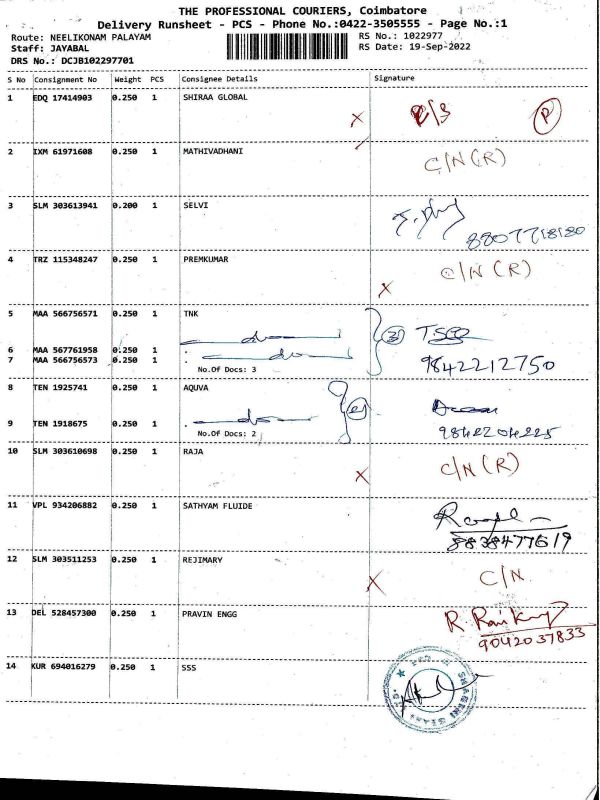 THE PROFESSIONAL COURIERS, Coimbatore
Delivery Runsheet - PCS - Phone No.:0422-3505555 - Page No.:1
Route: NEELIKONAM PALAYAM
RS No.: 1022977
Staff: JAYABAL
RS Date: 19-Sep-2022
DRS No.: DCJB102297701
S No Consignment No Weight PCS Consignee Details Signature
1 EDQ 17414903 0.250 1 SHIRAA GLOBAL
X P
2 IXM 61971608 0.250 1 MATHIVADHANI
C/N (R)
3 SLM 303613941 0.200 1 SELVI
8807718180
4 TRZ 115348247 0.250 1 PREMKUMAR
X C/N (R)
5 MAA 566756571 0.250 1 TNK
3
6 MAA 567761958 0.250 1
7 MAA 566756573 0.250 1
No.Of Docs: 3
9842212750
8 TEN 1925741 0.250 1 AQUVA
2
9 TEN 1918675 0.250 1
No.Of Docs: 2
9842204225
10 SLM 303610698 0.250 1 RAJA
X C/N (R)
11 VPL 934206882 0.250 1 SATHYAM FLUIDE
8838477619
12 SLM 303511253 0.250 1 REJIMARY
X C/N
13 DEL 528457300 0.250 1 PRAVIN ENGG
9042037833
14 KUR 694016279 0.250 1 SSS